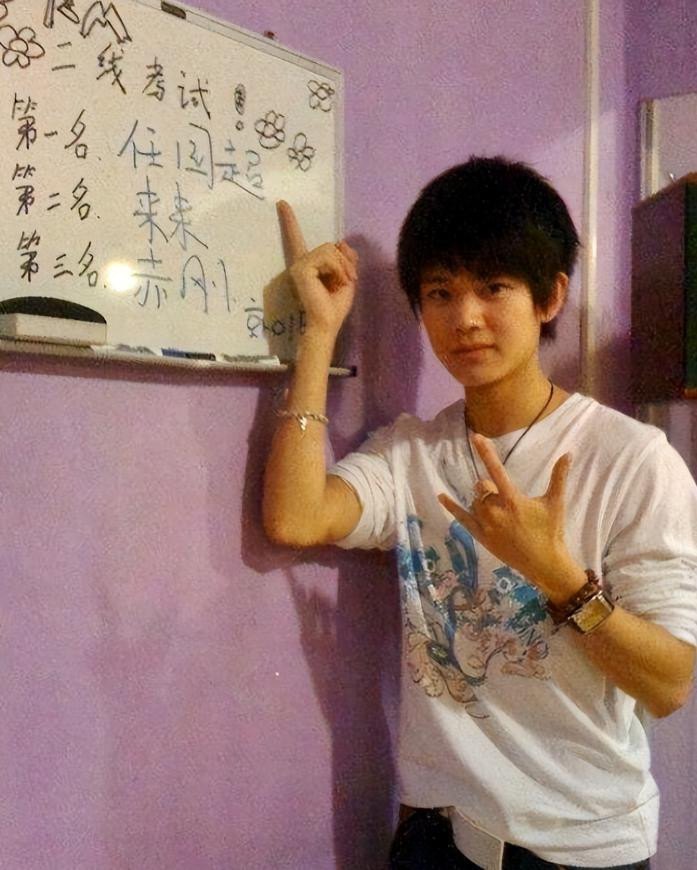 二线考试!
第一名. 任国超
第二名. 来来
第三名. 赤刚